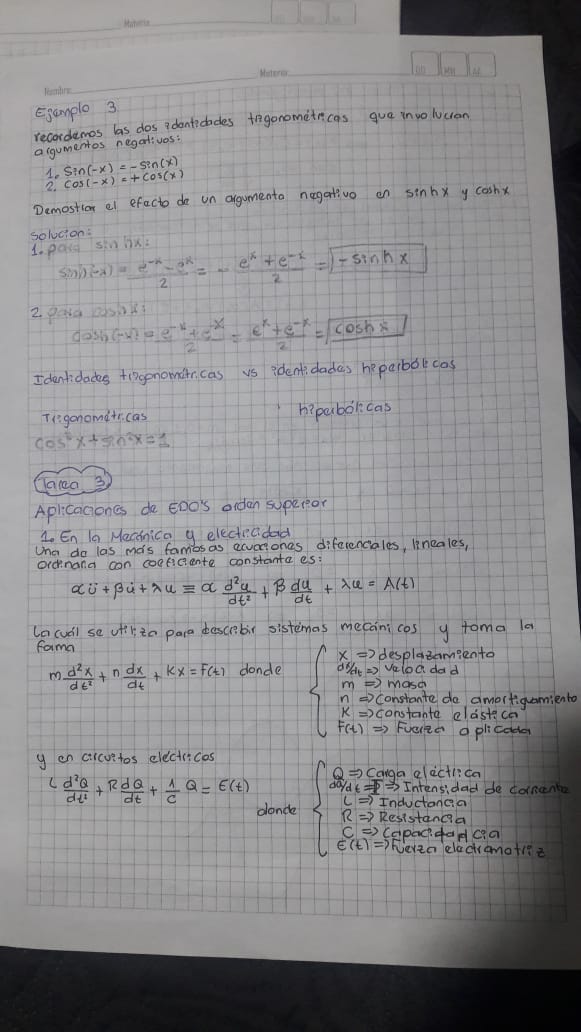 Materia
Nombre
Materia
DD MM AA
Ejemplo 3
recordemos las dos identidades trigonométricas que involucran
argumentos negativos:
1. Sin(-x) = -Sin(x)
2. Cos(-x) = + Cos(x)
Demostrar el efecto de un argumento negativo en sinhx y coshx
Solución:
1. para sinhx:
sinh(-x) = (e^-x - e^x)/2 = - (e^x + e^-x)/2 = -sinh x
2. para coshx:
cosh(-x) = (e^-x + e^x)/2 = (e^x + e^-x)/2 = cosh x
Identidades trigonométricas vs identidades hiperbólicas
Trigonométricas hiperbólicas
cos²x + sin²x = 1
Tarea 3
Aplicaciones de EDO's orden superior
1. En la Mecánica y electricidad
Una de las más famosas ecuaciones diferenciales, lineales,
ordinaria con coeficiente constante es:
αü + βu̇ + λu ≡ α d²u/dt² + β du/dt + λu = A(t)
La cuál se utiliza para describir sistemas mecánicos y toma la
forma
m d²x/dt² + n dx/dt + Kx = F(t) donde
x => desplazamiento
dx/dt => velocidad
m => masa
n => constante de amortiguamiento
K => constante elástica
F(t) => Fuerza aplicada
y en circuitos eléctricos
L d²Q/dt² + R dQ/dt + 1/C Q = E(t)
donde
Q => Carga eléctrica
dQ/dt = I => Intensidad de corriente
L => Inductancia
R => Resistencia
C => Capacidad cia
E(t) => Fuerza electromotriz